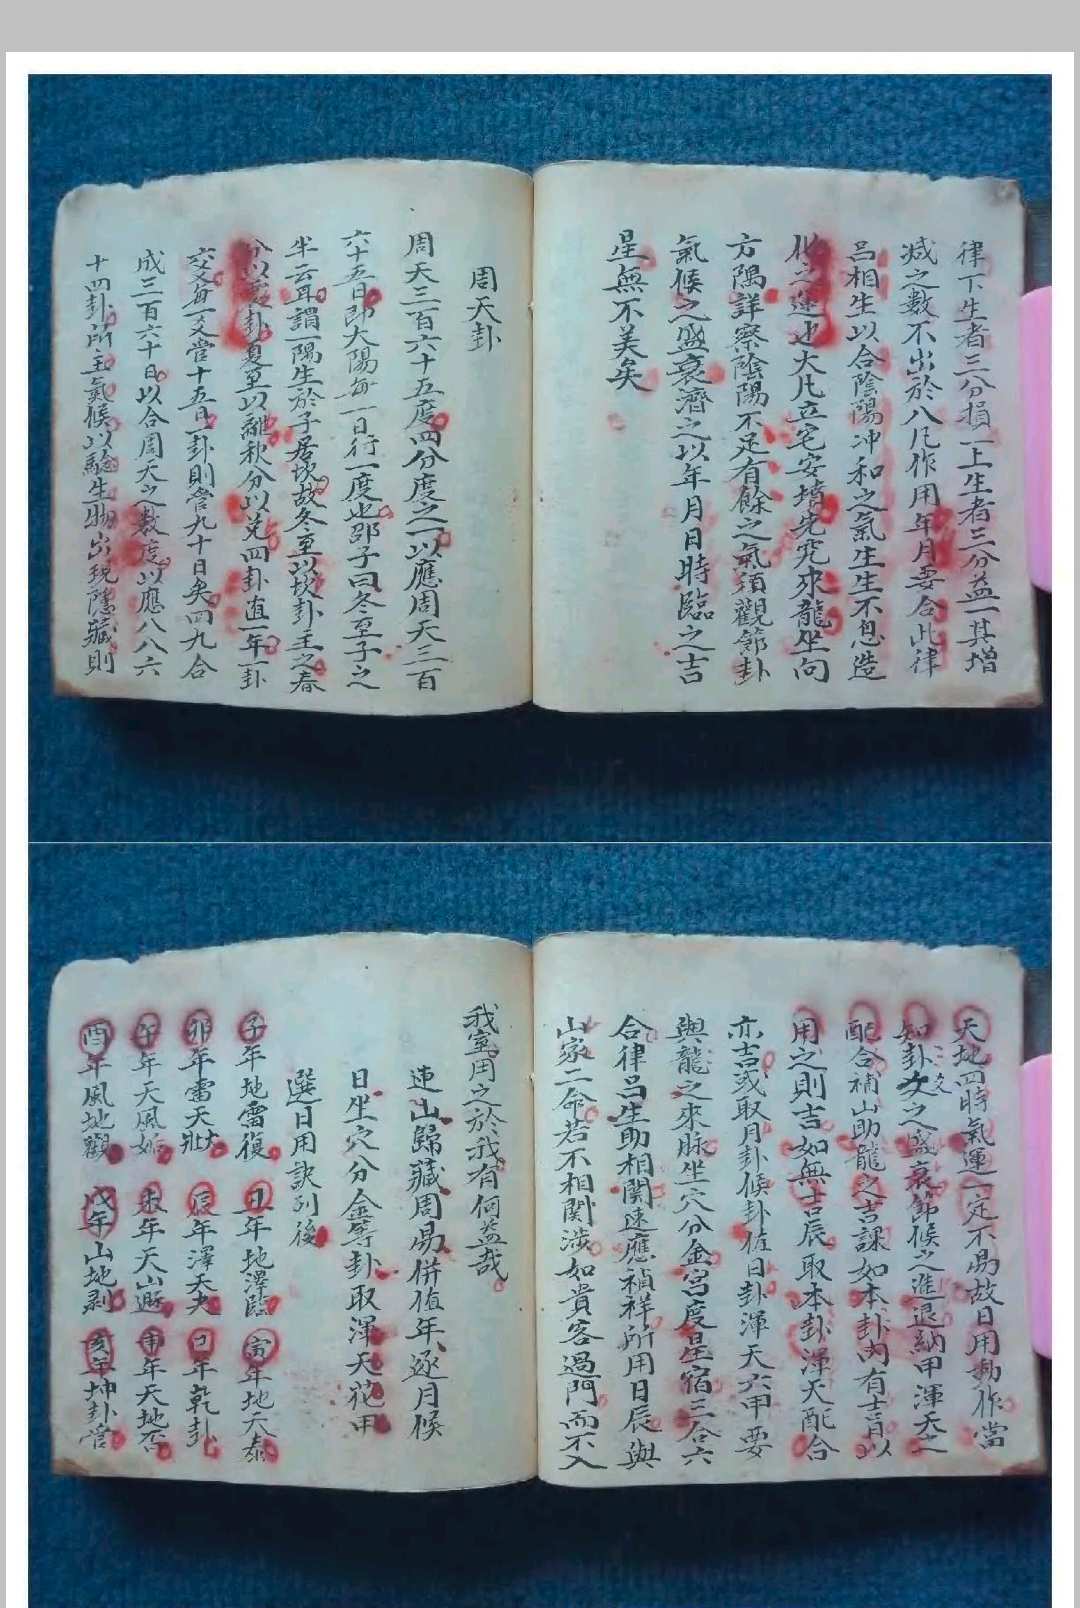 律下生者三分損一上生者三分益一其增
减之數不出於八凡作用年月要合此律
呂相生以合陰陽冲和之氣生生不息造
化之運也大凡立宅安墳先究來龍坐向
方隅詳察陰陽不足有餘之氣須觀節卦
氣候之盛衰濟之以年月日時臨之吉
星無不美矣
周天卦
周天三百六十五度四分度之一以應周天三百
六十五日即大陽每一日行一度也邵子曰冬至子之
半云耳謂一陽生於子居坎故冬至以坎卦主之春
分以震卦夏至以離秋分以兌四卦直一年一卦
六爻每一爻當十五日一卦則管九十日矣四九合
成三百六十日以合周天之數度以應八八六
十四卦所主氣候以驗生物出現隱藏則
天地四時氣運一定不易故日用動作當
知卦爻之盛衰節候之進退納甲渾天之
配合補山助龍之吉課如本卦內有士旨以
用之則吉如無吉辰取本卦渾天配合
亦吉或取月卦候卦值日卦渾天六甲要
與龍之來脉坐穴分金宮度星宿三合六
合律呂生助相関速應禎祥所用日辰與
山家二命若不相関涉如貴客過門而不入
我室用之於我有何益哉
連山歸藏周易併值年逐月候
日坐穴分金等卦取渾天花甲
選日用訣列後
子年地雷復 丑年地澤臨 寅年地天泰
卯年雷天壯 辰年澤天夬 巳年乾卦
午年天風姤 未年天山遯 申年天地否
酉年風地觀 戌年山地剥 亥年坤卦管